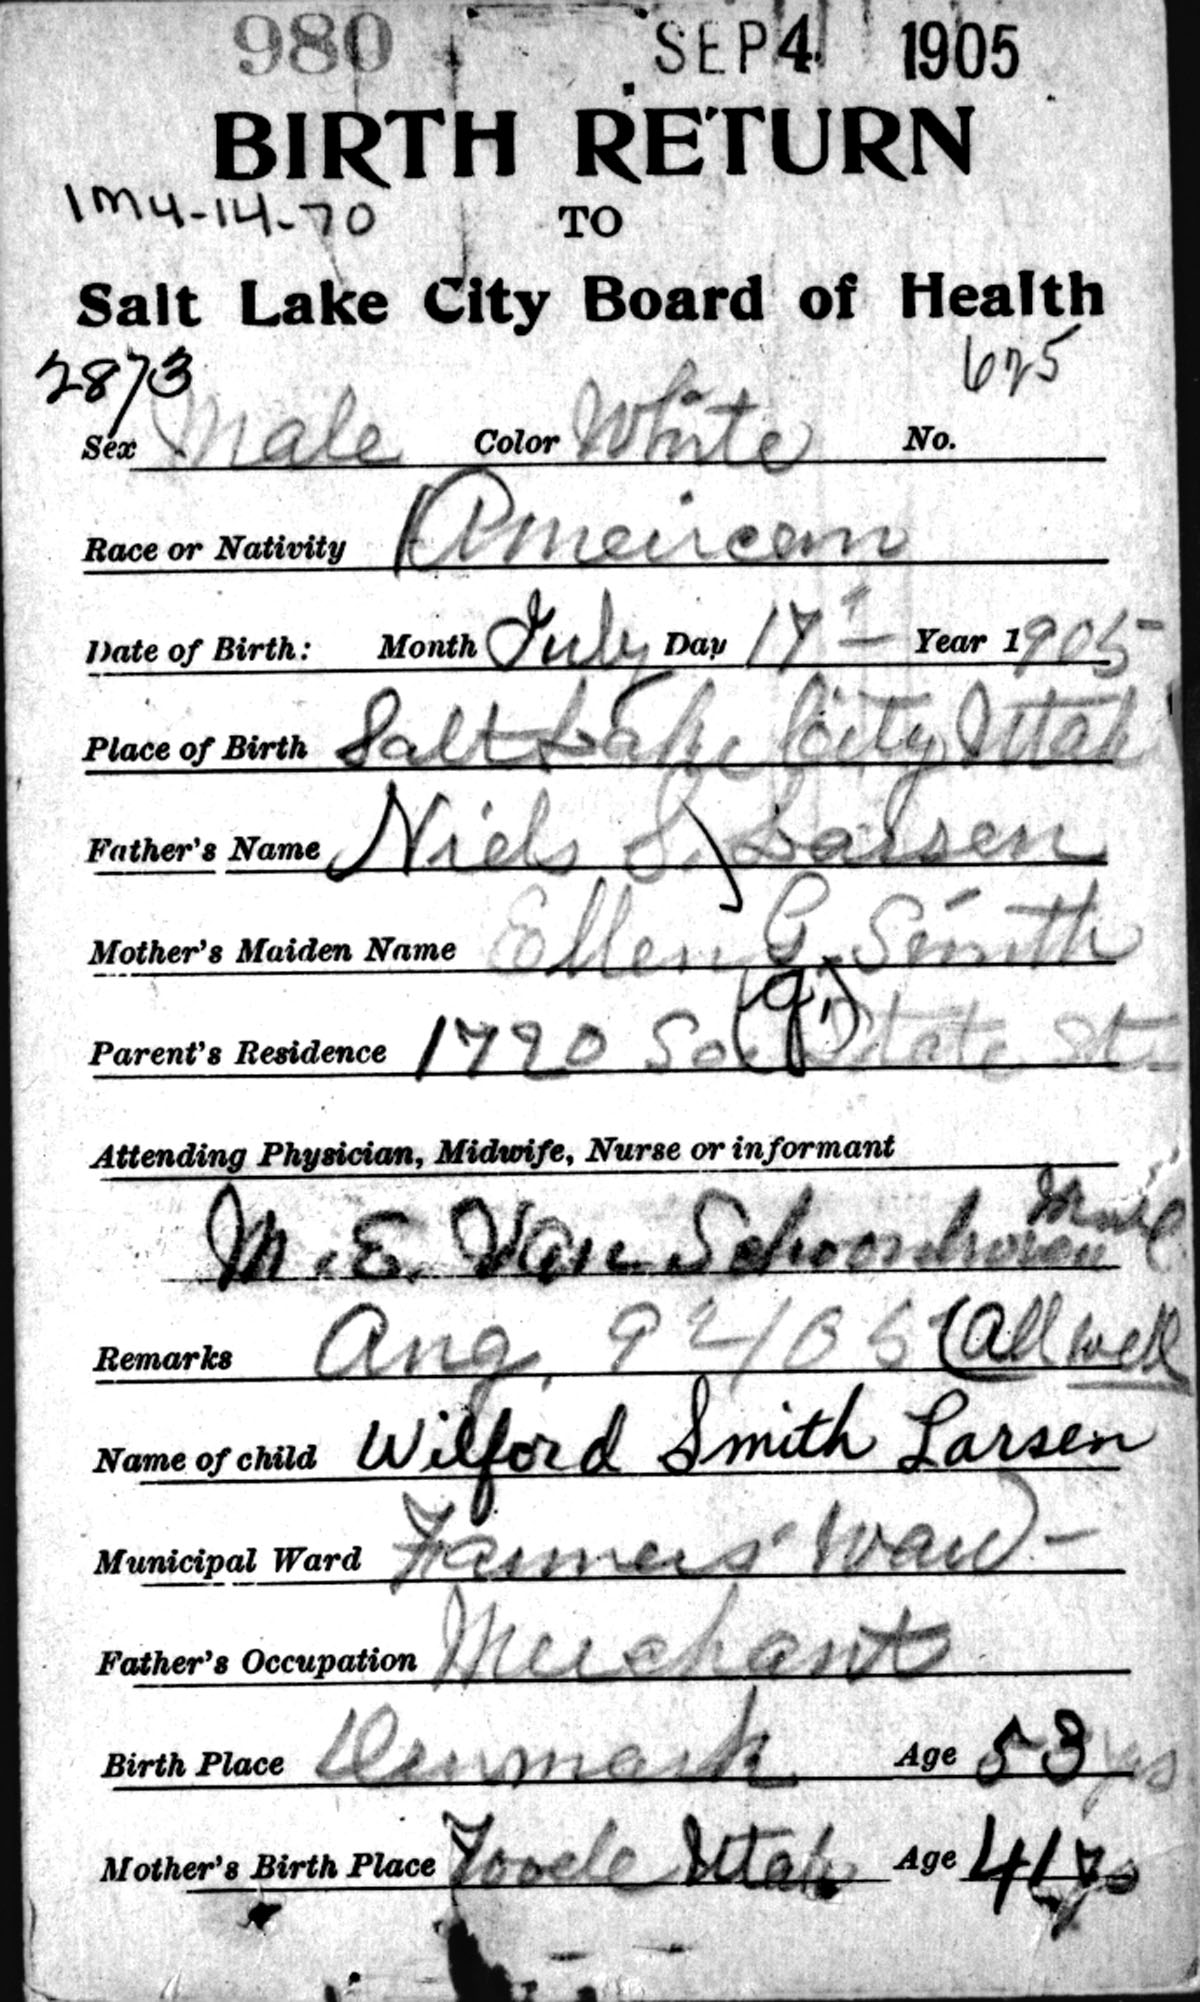 980 SEP 4 1905
BIRTH RETURN
1M4-14-70 TO
Salt Lake City Board of Health
2873 625
Sex Male Color White No.
Race or Nativity Ameircan
Date of Birth: Month July Day 17 Year 1905
Place of Birth Salt Lake City Utah
Father's Name Niels S. Larsen
Mother's Maiden Name Ellen G. Smith
(J.)
Parent's Residence 1720 So State St.
Attending Physician, Midwife, Nurse or informant
M. E. Van Schoonhoven
Remarks Aug. 9 1905 (All well
Name of child Wilford Smith Larsen
Municipal Ward Farmers Ward
Father's Occupation Merchant
Birth Place Denmark Age 53 yrs
Mother's Birth Place Tooele Utah Age 41 yrs